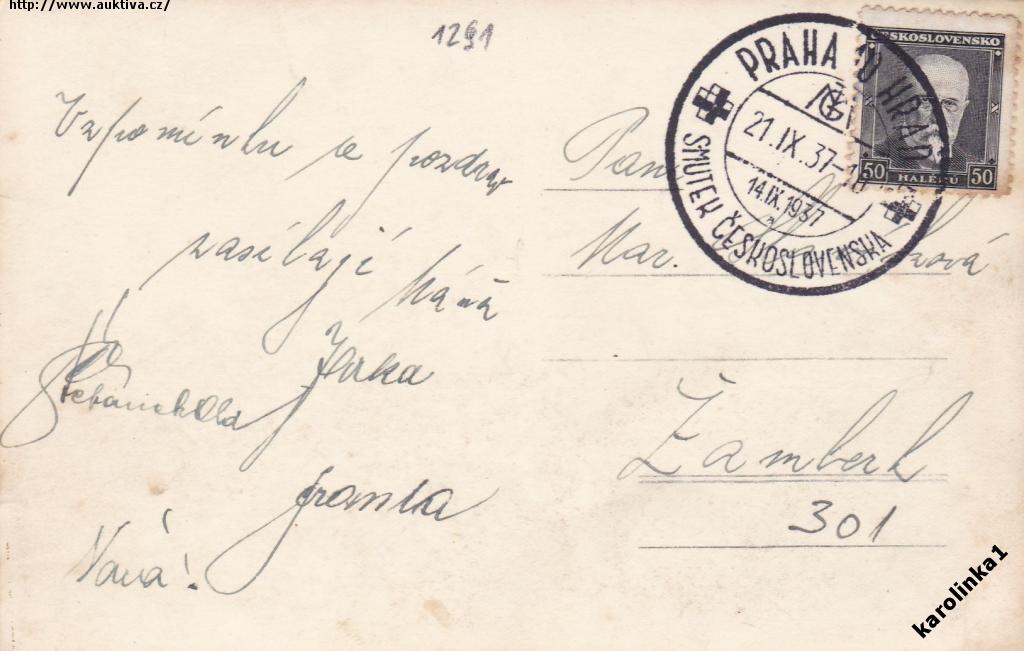 http://www.auktiva.cz/
1291
PRAHA 10 HRAD
21.IX.37-
14.IX.1937
SMUTEK ČESKOSLOVENSKA
ČESKOSLOVENSKO
50 HALÉŘŮ 50
Vzpomínku a pozdrav
zasílají Máňa
Jirka
Franta
Váňa!
Mar.
Žamberk
301
karolinka1